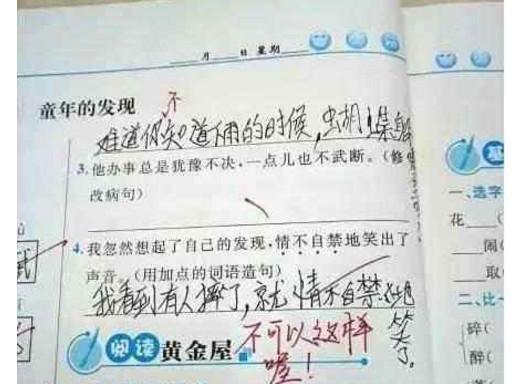 月 日 星期
童年的发现
不
难道你知道下雨的时候,蝴蝶
3.他办事总是犹豫不决,一点儿也不武断。(修
改病句)
4.我忽然想起了自己的发现,情不自禁地笑出了
声音。(用加点的词语造句)
我看到有人摔了,就情不自禁地
笑了。
不可以这样
喔!
阅读黄金屋
基
一、选字
花
闹(
取(
二、比一
碎(
醉(